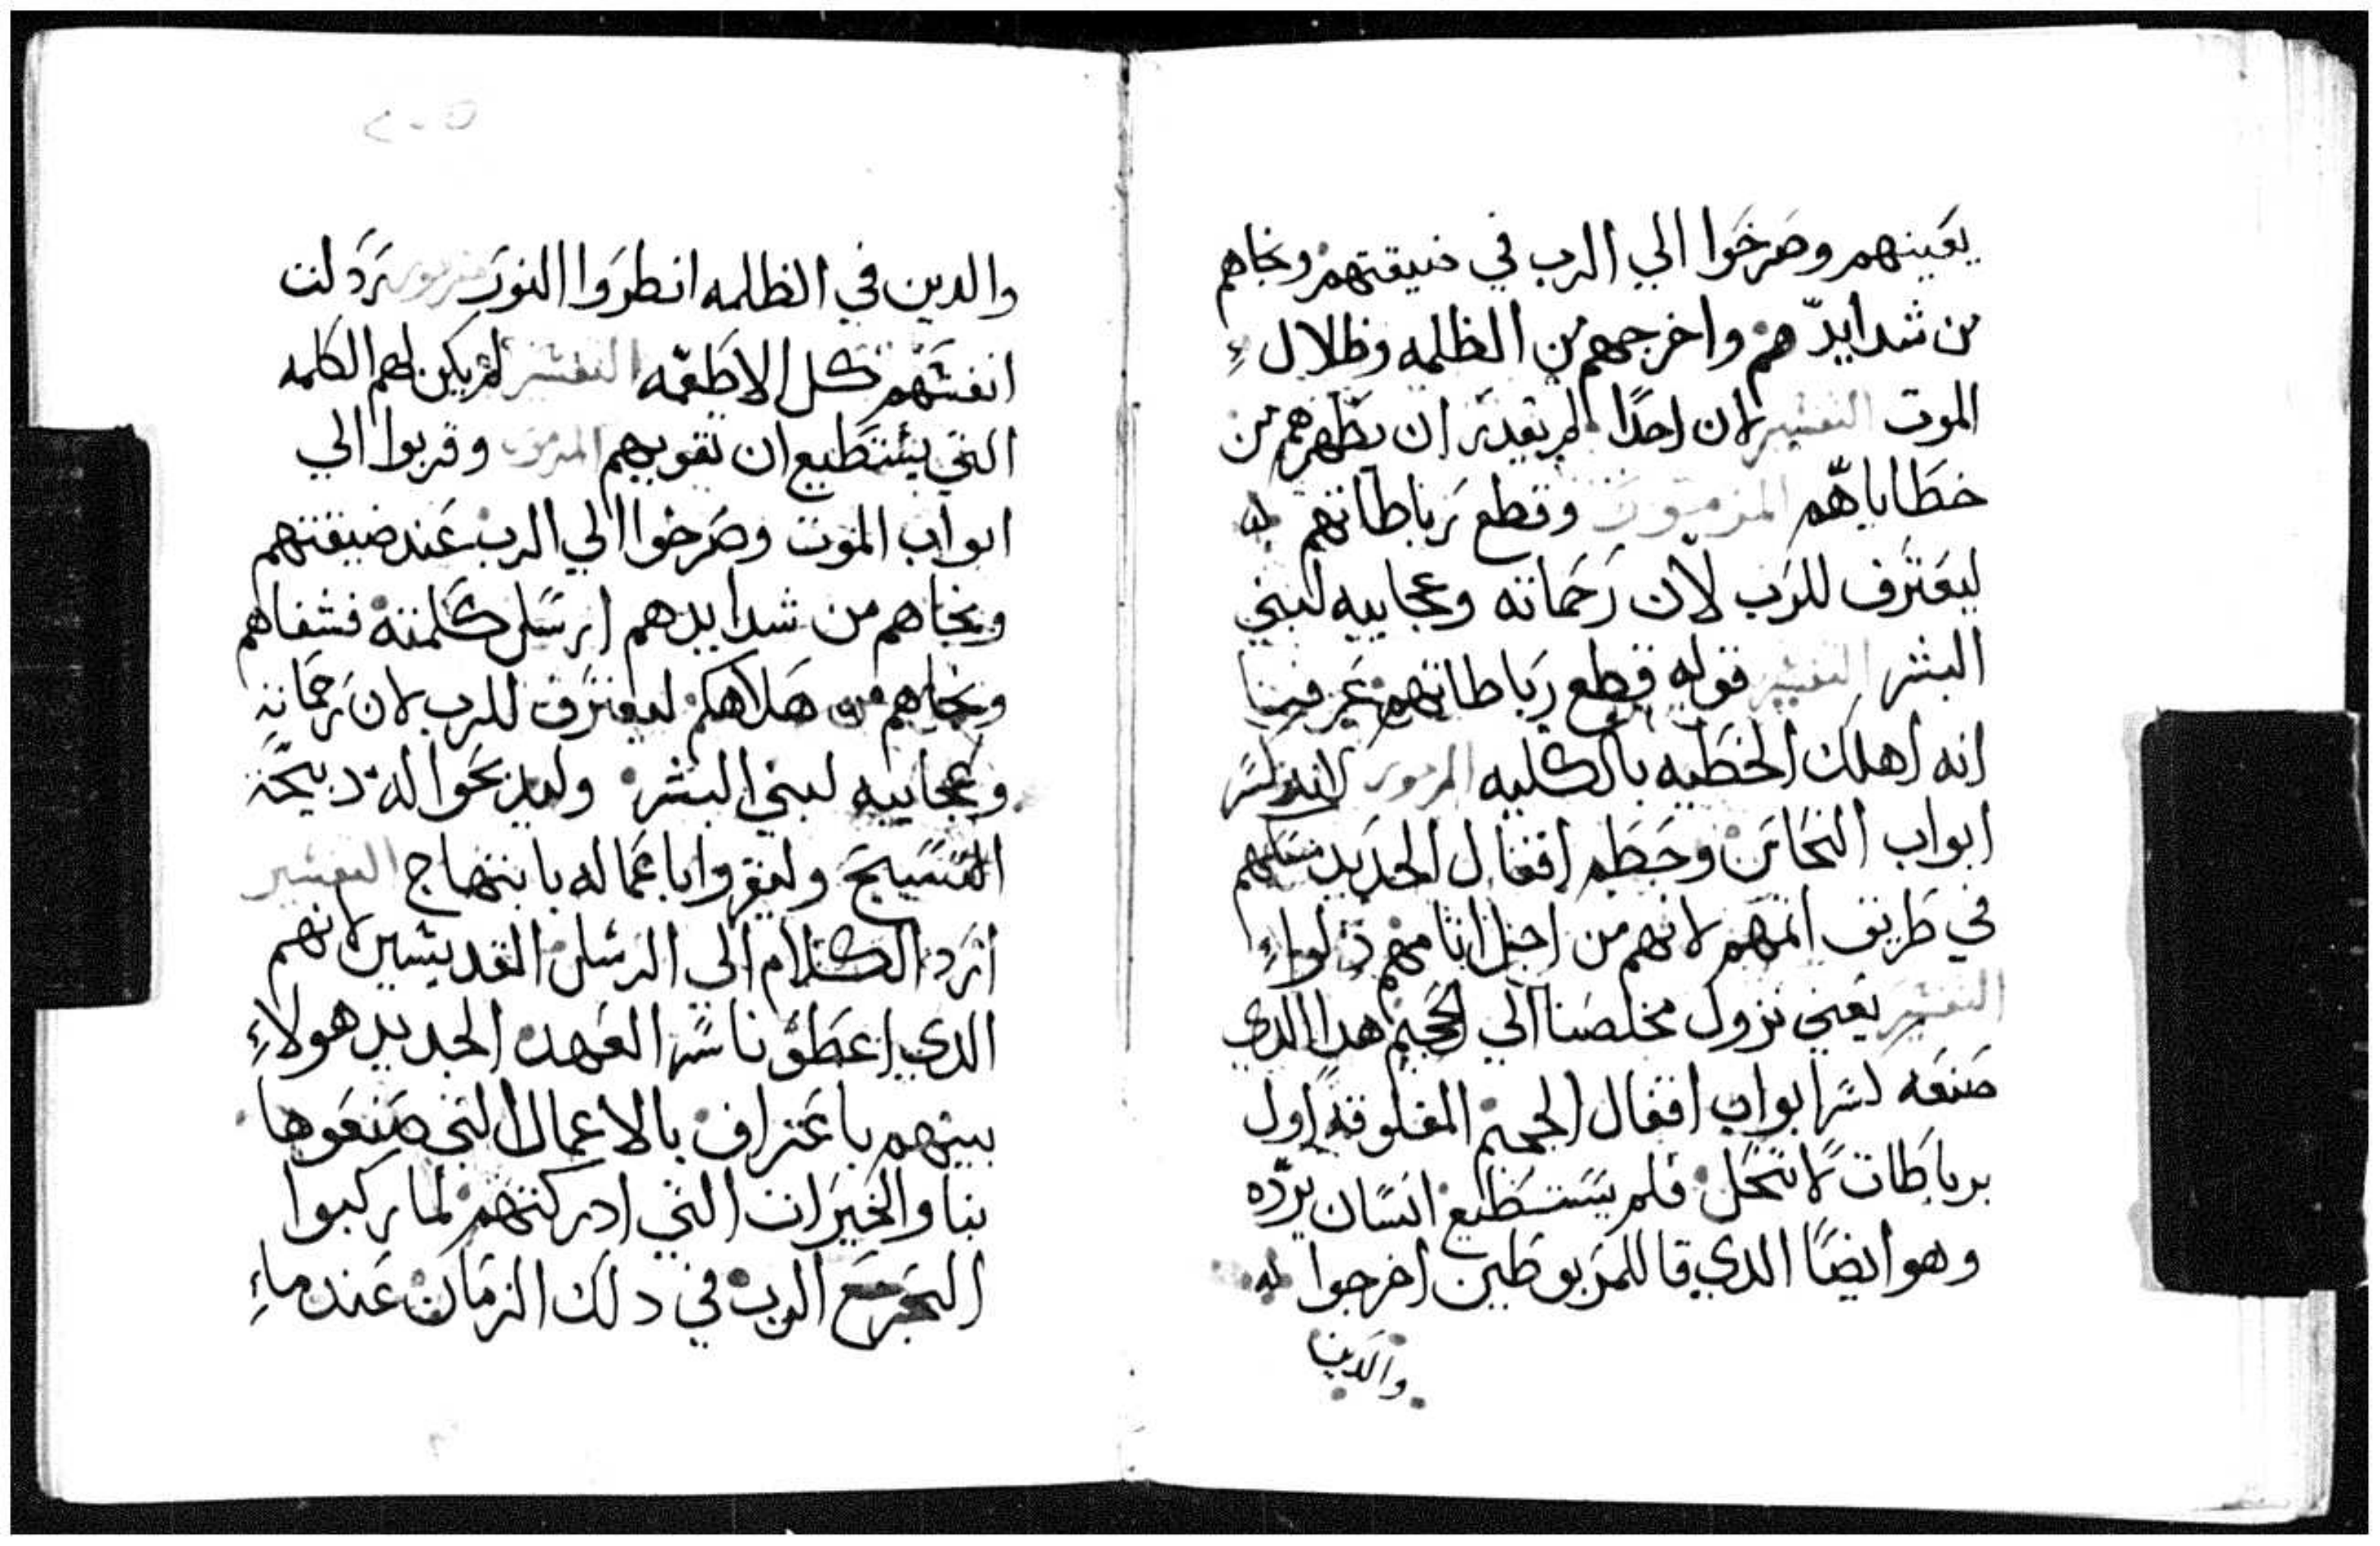 يعينهم وصرخوا الي الرب في ضيقتهم ونجاهم
من شدايدهم واخرجهم من الظلمه وظلال
الموت التفسير لان احدًا لم يقدر ان يطهرهم من
خطاياهم المزمور وقطع رباطاتهم
ليعترف للرب لان رحماته وعجايبه لبني
البشر التفسير قوله قطع رباطاتهم عرفينا
انه اهلك الخطيه بالكليه المزمور لانه كسر
ابواب النحاس وحطم اقفال الحديد
في طريق اثمهم لانهم من اجل اثامهم دلوا
التفسير يعني نزول مخلصنا الي الجحيم هدا الدي
صنعه كسر ابواب اقفال الجحيم المغلوقه اول
برباطات لا تنحل فلم يستطيع انسان يرده
وهو ايضًا الدي قال للمربوطين اخرجوا
والدين
والدين في الظلمه انطروا النور مزمور رذلت
انفسهم كل الاطعمه التفسير لم يكن لهم الكلمه
التي يستطيع ان تقويهم المزمور وقربوا الي
ابواب الموت وصرخوا الي الرب عند ضيقتهم
ونجاهم من شدايدهم ارسل كلمته فشفاهم
ونجاهم من هلاكهم ليعترف للرب لان رحماته
وعجايبه لبني البشر وليدبحوا له دبيحة
التسبيح وليقروا باعماله بابتهاج التفسير
ارد الكلام الي الرسل القديسين لانهم
الدي اعطونا سر العهد الجديد هولاء
بينهم باعتراف بالاعمال التي صنعوها
بنا والخيرات التي ادركتهم لما ركبوا
البحر مع الرب في دلك الزمان عند ماء